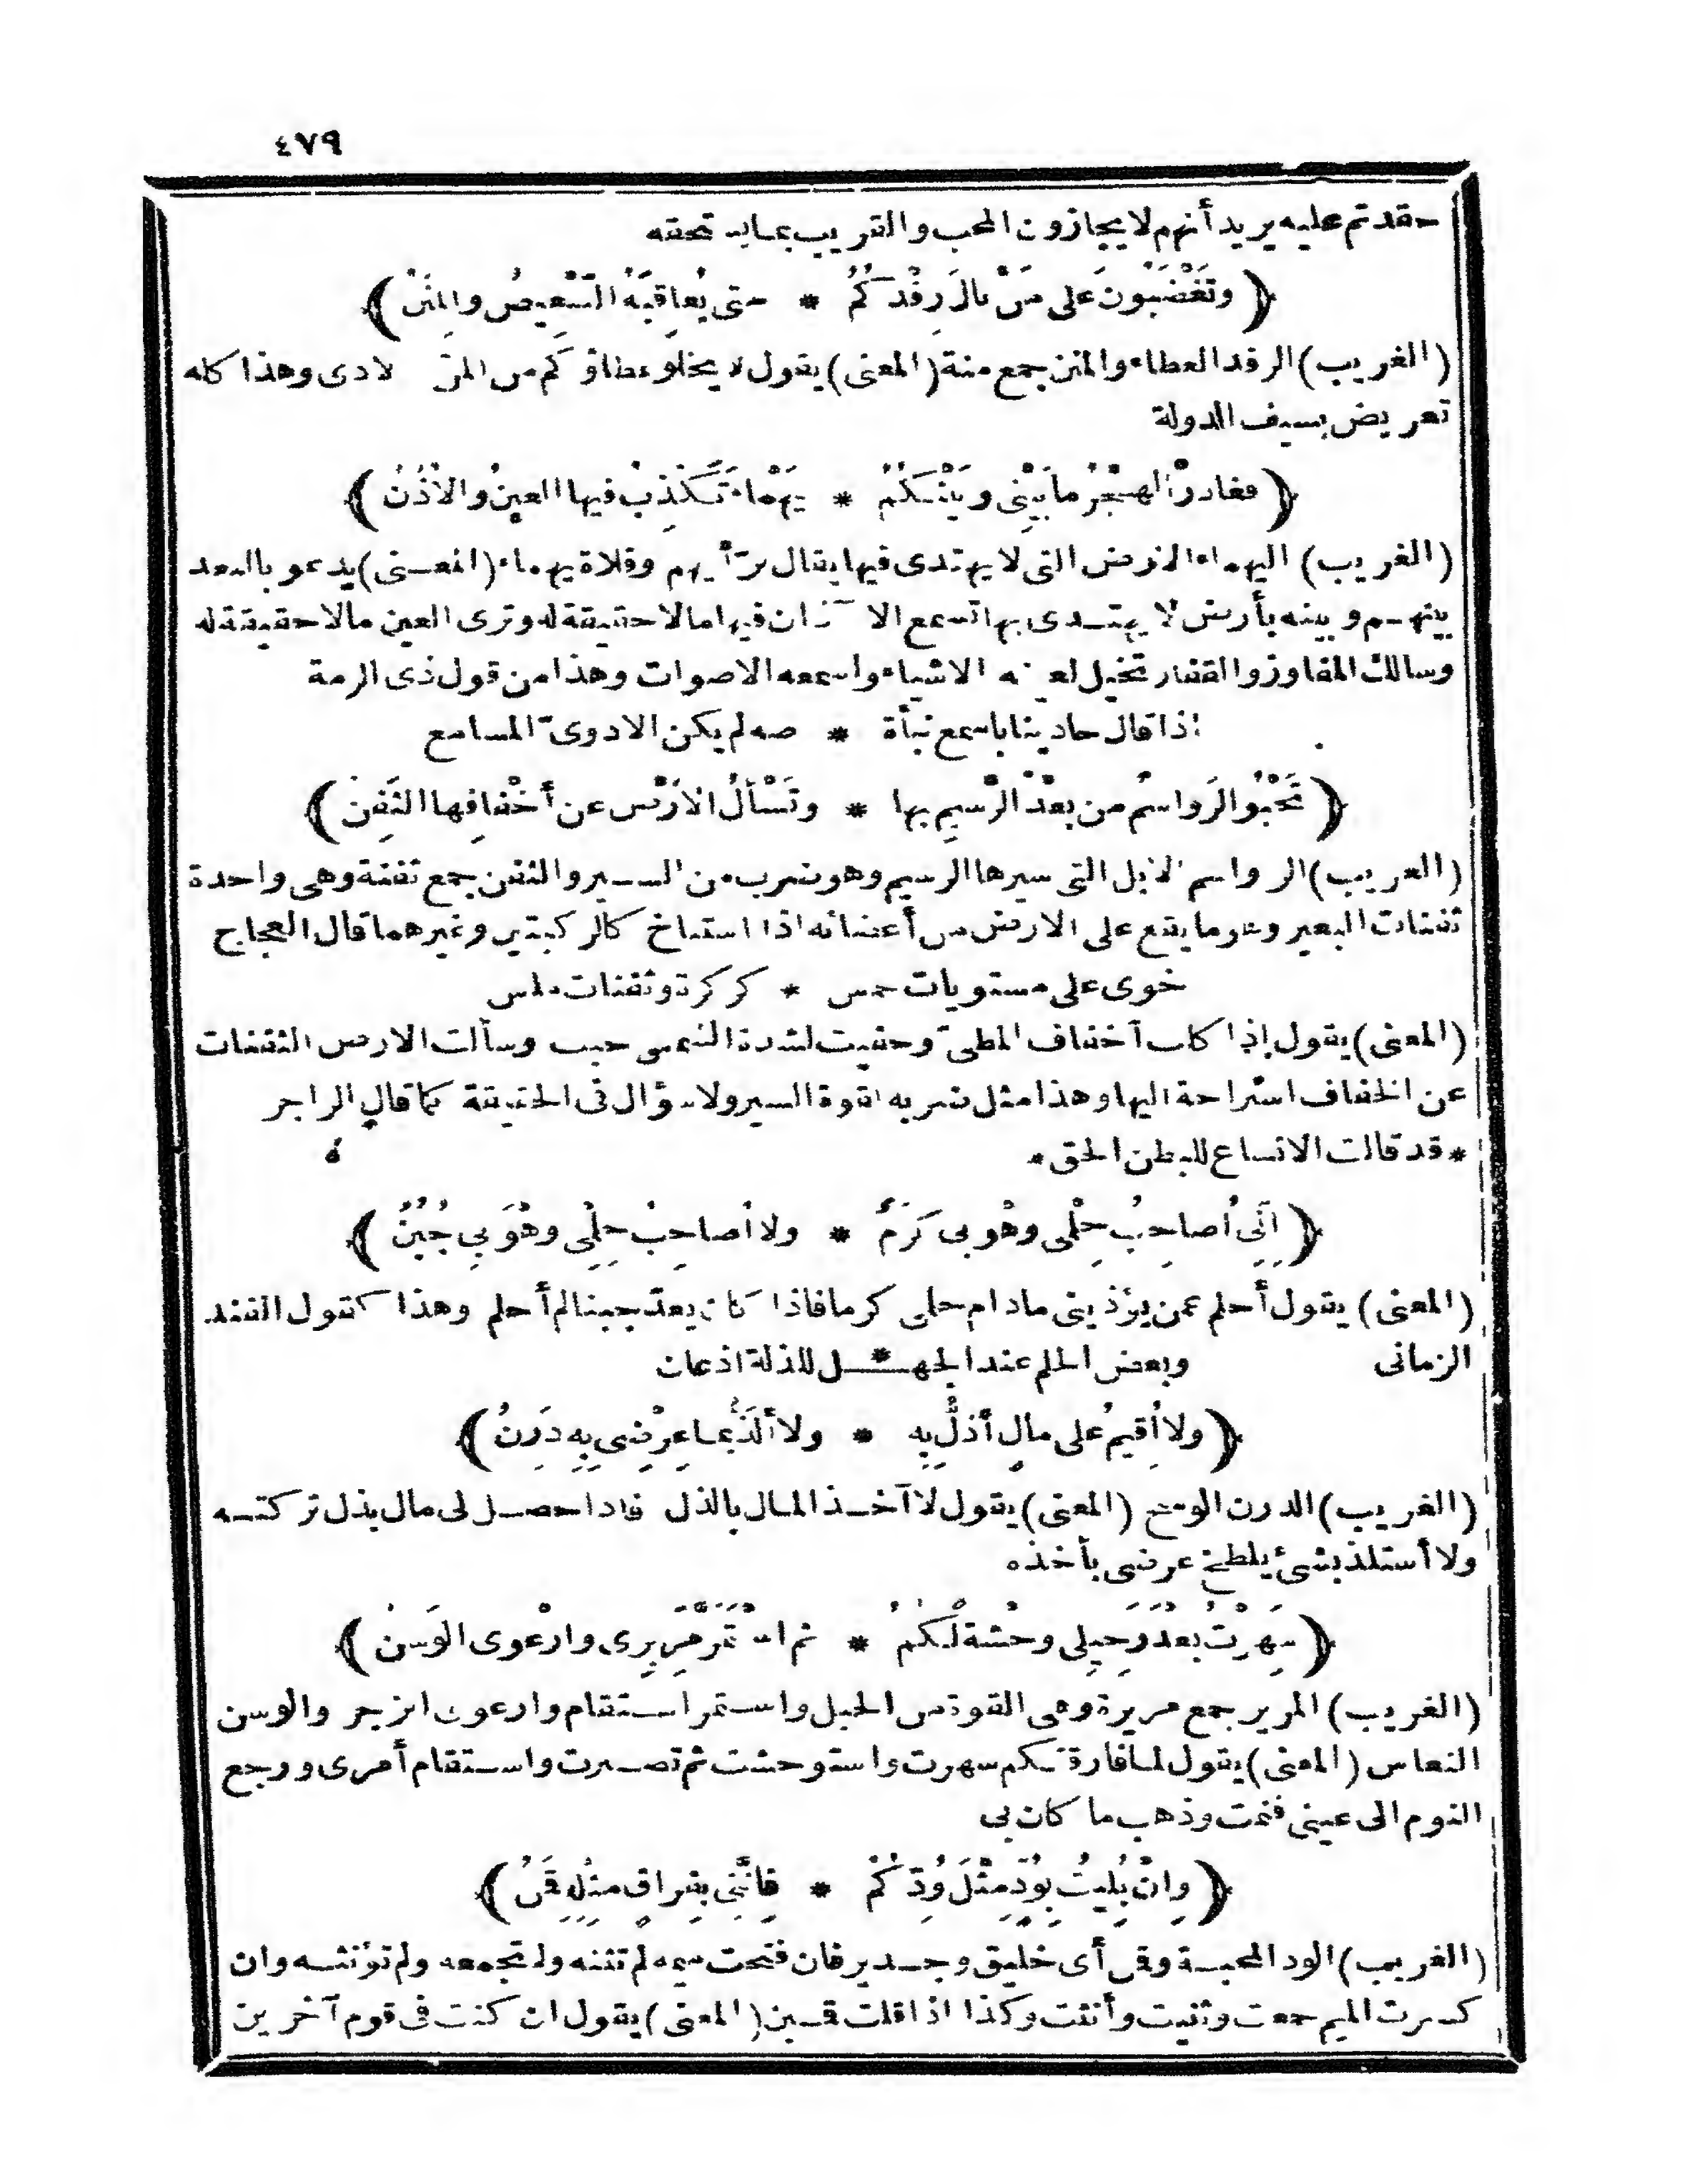 ٤٧٩
حقدتم عليه يريد أنهم لا يجازون المحب والقريب بما يستحقه
﴿ وتَغْضَبُونَ على مَنْ نالَ رِفْدَكُمُ * حتى يُعاقِبَهُ التَّنْغِيصُ والمِنَنُ ﴾
(الغريب) الرفد العطاء والمنن جمع منة (المعنى) يقول لا يخلو عطاؤكم من المن والاذى وهذا كله
تعريض بسيف الدولة
﴿ فغادرَ الهَجْرُ ما بَيْنِى وبَيْنَكُمُ * يَهْماءَ تَكْذِبُ فيها العينُ والاُذُنُ ﴾
(الغريب) اليهماء الارض التى لا يهتدى فيها يقال برّ أيهم وفلاة يهماء (المعنى) يدعو بالبعد
بينهم وبينه بأرض لا يهتدى بها تسمع الآذان فيها مالا حقيقة له وترى العين مالا حقيقة له
وسالك المفاوز والقفار تخيل لعينه الاشياء واسمعه الاصوات وهذا من قول ذى الرمة
اذا قال حادينا ياسمع نبأة * صه لم يكن الا دوىّ المسامع
﴿ تَحْبُو الرَواسمُ من بعْدِ الرَّسيمِ بها * وتَسْألُ الاَرْضَ عن أخْفافِها الثَفِنُ ﴾
(الغريب) الرواسم الابل التى سيرها الرسيم وهو ضرب من السير والثفن جمع ثفنة وهى واحدة
ثفنات البعير وهو ما يقع على الارض من أعضائه اذا استناخ كالركبتين وغيرهما قال العجاج
خوى على مستويات خمس * كركرة وثفنات ملس
(المعنى) يقول إذا كلت أخفاف المطىّ وحفيت لشدة السعى حبت وسألت الارض الثفنات
عن الخفاف استراحة اليها وهذا مثل ضربه لقوة السير ولا سؤال فى الحقيقة كما قال الراجز
* قد قالت الانساع للبطن الحق *
﴿ اِنِّى اُصاحِبُ حِلْمى وهْو بى كَرَمٌ * ولا اُصاحِبُ حِلْمِى وهْوَ بِى جُبُنُ ﴾
(المعنى) يقول أحلم عمن يؤذينى مادام حلمى كرما فاذا كان يعدّ جبنا لم أحلم وهذا كقول الفند
الزمانى وبعض الحلم عند الجهـ * ـل للذلة اذعان
﴿ ولا اُقِيمُ على مالٍ أذلُّ بِه * ولا ألَذُّ بما عِرْضِى بِه دَرِنُ ﴾
(الغريب) الدرن الوسخ (المعنى) يقول لا آخذ المال بالذل فاذا حصل لى مال بذل تركته
ولا أستلذ بشئ يلطخ عرضى بأخذه
﴿ سَهِرْتُ بعْدَ رَحِيلِى وحْشةً لَكُمُ * ثم اسْتَمَرَّ مَرِيرِى وارْعَوى الوَسَنُ ﴾
(الغريب) المرير جمع مريرة وهى القوة من الحبل واستمر استقام وارعوى انزجر والوسن
النعاس (المعنى) يقول لما فارقتكم سهرت واستوحشت ثم تصبرت واستقام أمرى ورجع
النوم الى عينى فنمت وذهب ما كان بى
﴿ واِنْ بُلِيتُ بِوُدٍّ مِثْلَ وُدِّكُمُ * فاِنَّنِى بفِراقٍ مِثْلِهِ قَمِنُ ﴾
(الغريب) الود المحبة وقمن أى خليق وجدير فان فتحت ميمه لم تثنه ولم تجمعه ولم تؤنثه وان
كسرت الميم جمعت وثنيت وأنثت وكذا اذا قلت قمين (المعنى) يقول ان كنت فى قوم آخرين